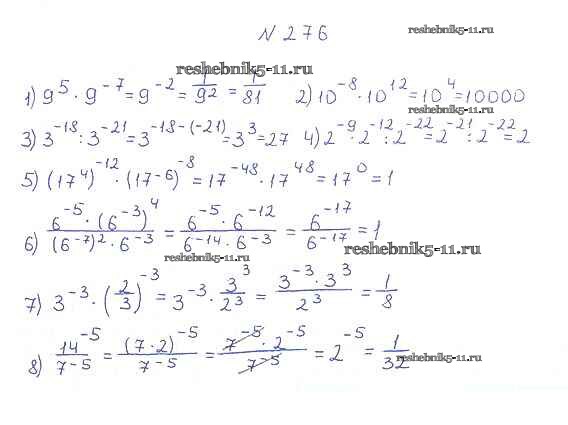 N 276 reshebnik5-11.ru
reshebnik5-11.ru
1) 9^5 · 9^-7 = 9^-2 = 1/9^2 = 1/81 2) 10^-8 · 10^12 = 10^4 = 10000
reshebnik5-11.ru
3) 3^-18 : 3^-21 = 3^-18-(-21) = 3^3 = 27 4) 2^-9 · 2^-12 : 2^-22 = 2^-21 : 2^-22 = 2
5) (17^4)^-12 · (17^-6)^-8 = 17^-48 · 17^48 = 17^0 = 1
6) 6^-5 · (6^-3)^4 / (6^-7)^2 · 6^-3 = 6^-5 · 6^-12 / 6^-14 · 6^-3 = 6^-17 / 6^-17 = 1
reshebnik5-11.ru
reshebnik5-11.ru
7) 3^-3 · (2/3)^-3 = 3^-3 · 3^3/2^3 = 3^-3 · 3^3 / 2^3 = 1/8
8) 14^-5 / 7^-5 = (7·2)^-5 / 7^-5 = 7^-5 · 2^-5 / 7^-5 = 2^-5 = 1/32
reshebnik5-11.ru